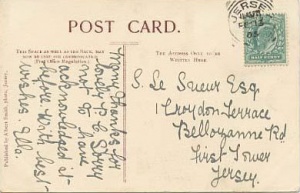 POST CARD.
THIS SPACE AS WELL AS THE BACK, MAY
NOW BE USED FOR COMMUNICATION
(Post Office Regulation).
THE ADDRESS ONLY TO BE
WRITTEN HERE
JERSEY
HALF PENNY
Many thanks for
lovely P.C. Sorry
not to have
acknowledged it
before with best
wishes. Ella.
S. Le Sueur Esq.
1 Croydon Terrace
Bellozanne Rd
First Tower
Jersey.
Published by Albert Smith, Photo, Jersey.